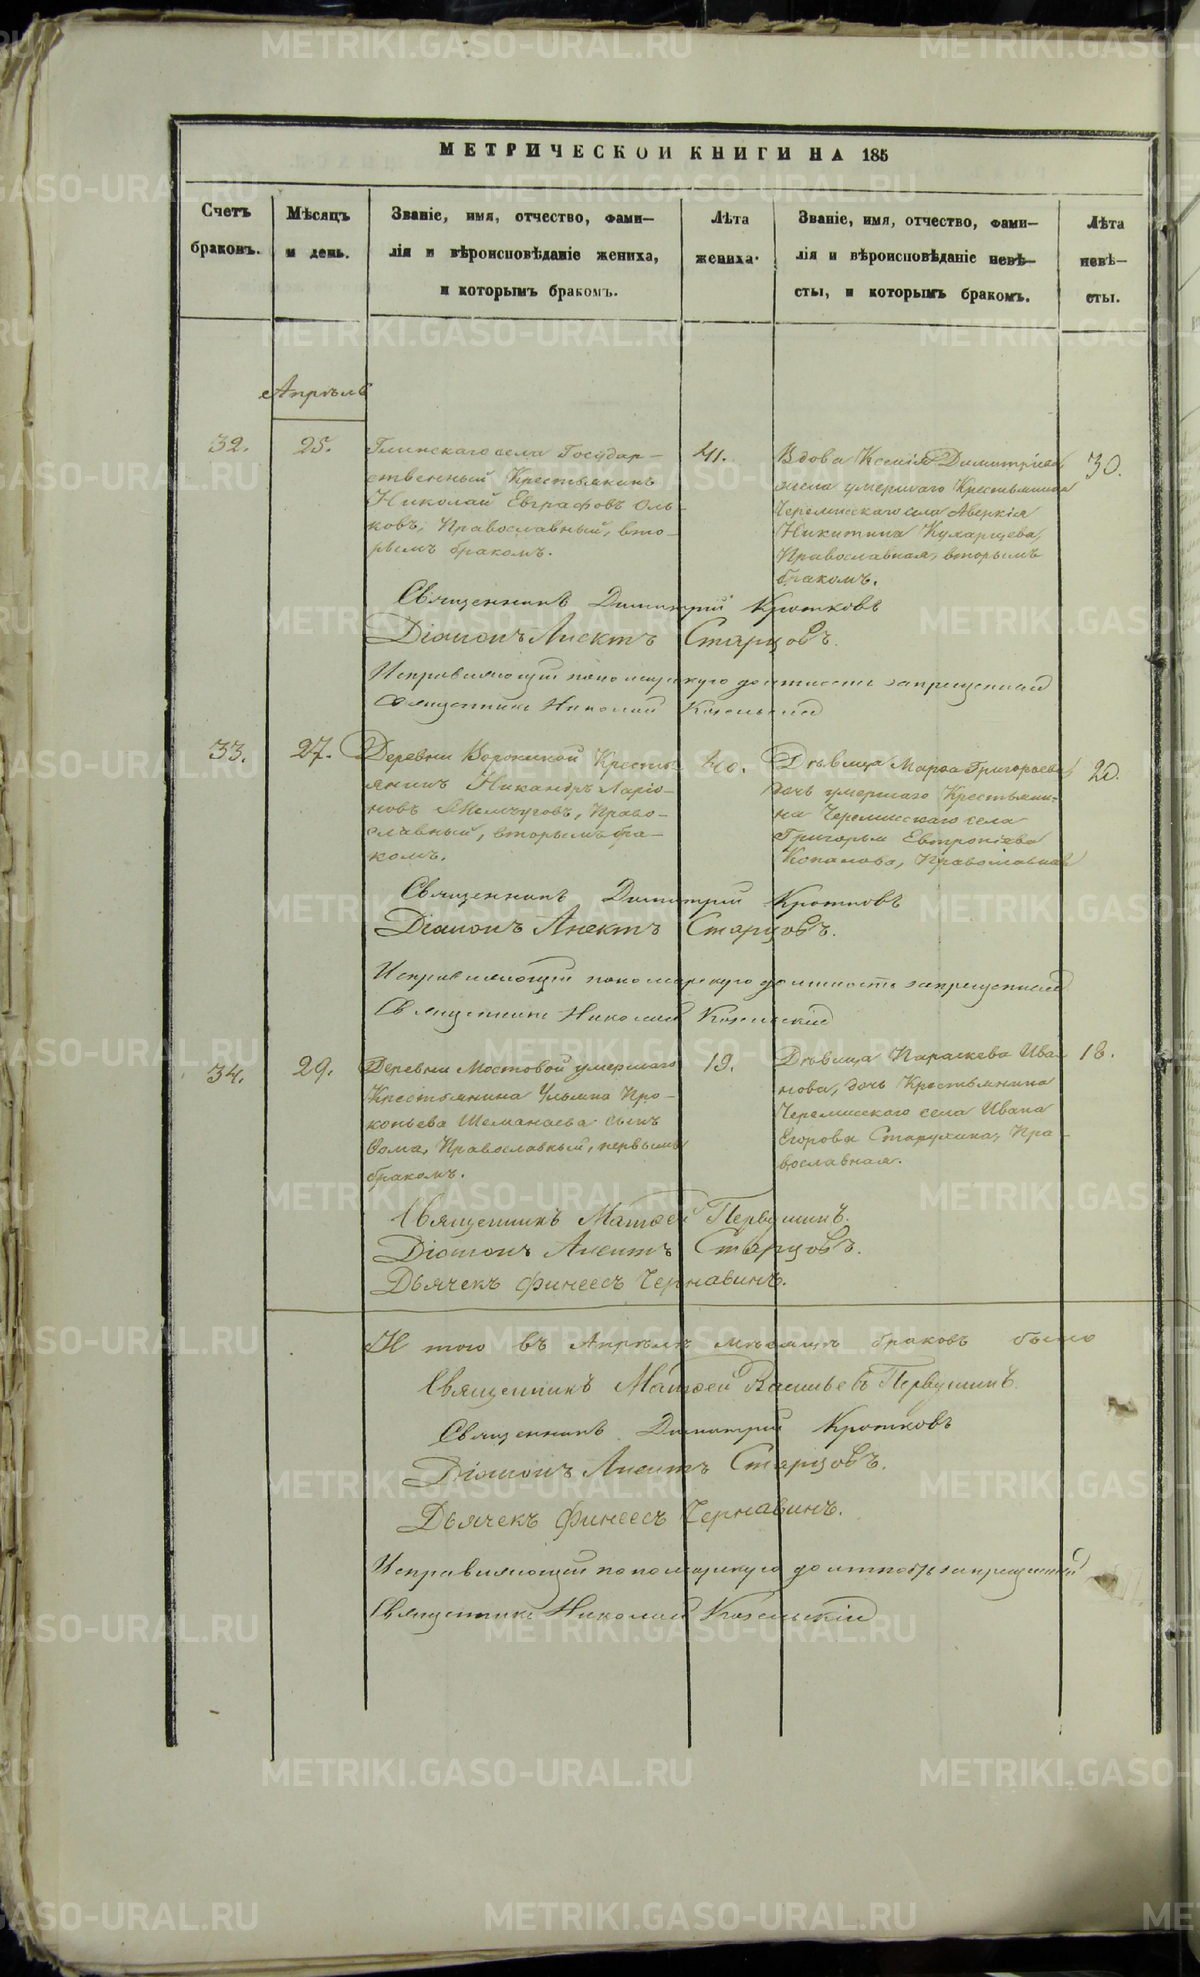 МЕТРИЧЕСКОЙ КНИГИ НА 185
Счетъ браковъ.
Мѣсяцъ и день.
Званіе, имя, отчество, фами-
лія и вѣроисповѣданіе жениха,
и которымъ бракомъ.
Лѣта жениха.
Званіе, имя, отчество, фами-
лія и вѣроисповѣданіе невѣ-
сты, и которымъ бракомъ.
Лѣта невѣ-
сты.
Апрѣль
32.
25.
Глинскаго села Государ-
ственный Крестьянинъ
Николай Евграфовъ Оль-
ковъ, Православный, вто-
рымъ бракомъ.
41.
Вдова Ксенія Димитріева,
жена умершаго Крестьянина
Черемисскаго села Аверкія
Никитина Кухарцева,
Православная, вторымъ
бракомъ.
30.
Священникъ Димитрій Кротковъ
Діаконъ Анектъ Старцовъ.
Исправляющій пономарскую должность запрещенный
Священникъ Николай
33.
27.
Деревни Ворониной Кресть-
янинъ Никандръ Ларіо-
новъ Жемчуговъ, Право-
славный, вторымъ бра-
комъ.
40.
Дѣвица Марѳа Григорьева,
дочь умершаго Крестьяни-
на Черемисскаго села
Григорья Евтропіева
Копалова, Православная
20.
Священникъ Димитрій Кротковъ
Діаконъ Анектъ Старцовъ.
Исправляющій пономарскую должность запрещенный
Священникъ Николай
34.
29.
Деревни Мостовой умершаго
Крестьянина Ульяна Про-
копьева Шеманаева сынъ
Ѳома, Православный, первымъ
бракомъ.
19.
Дѣвица Параскева Ива-
нова, дочь Крестьянина
Черемисскаго села Ивана
Егорова Старухина, Пра-
вославная.
18.
Священникъ Матѳей Первушинъ.
Діаконъ Анектъ Старцовъ.
Дьячекъ Финеесъ Чернавинъ.
И того въ Апрѣлѣ мѣсяцѣ браковъ было
Священникъ Матѳей Васильевъ Первушинъ.
Священникъ Димитрій Кротковъ
Діаконъ Анектъ Старцовъ.
Дьячекъ Финеесъ Чернавинъ.
Исправляющій пономарскую должность запрещенный
Священникъ Николай
METRIKI.GASO-URAL.RU